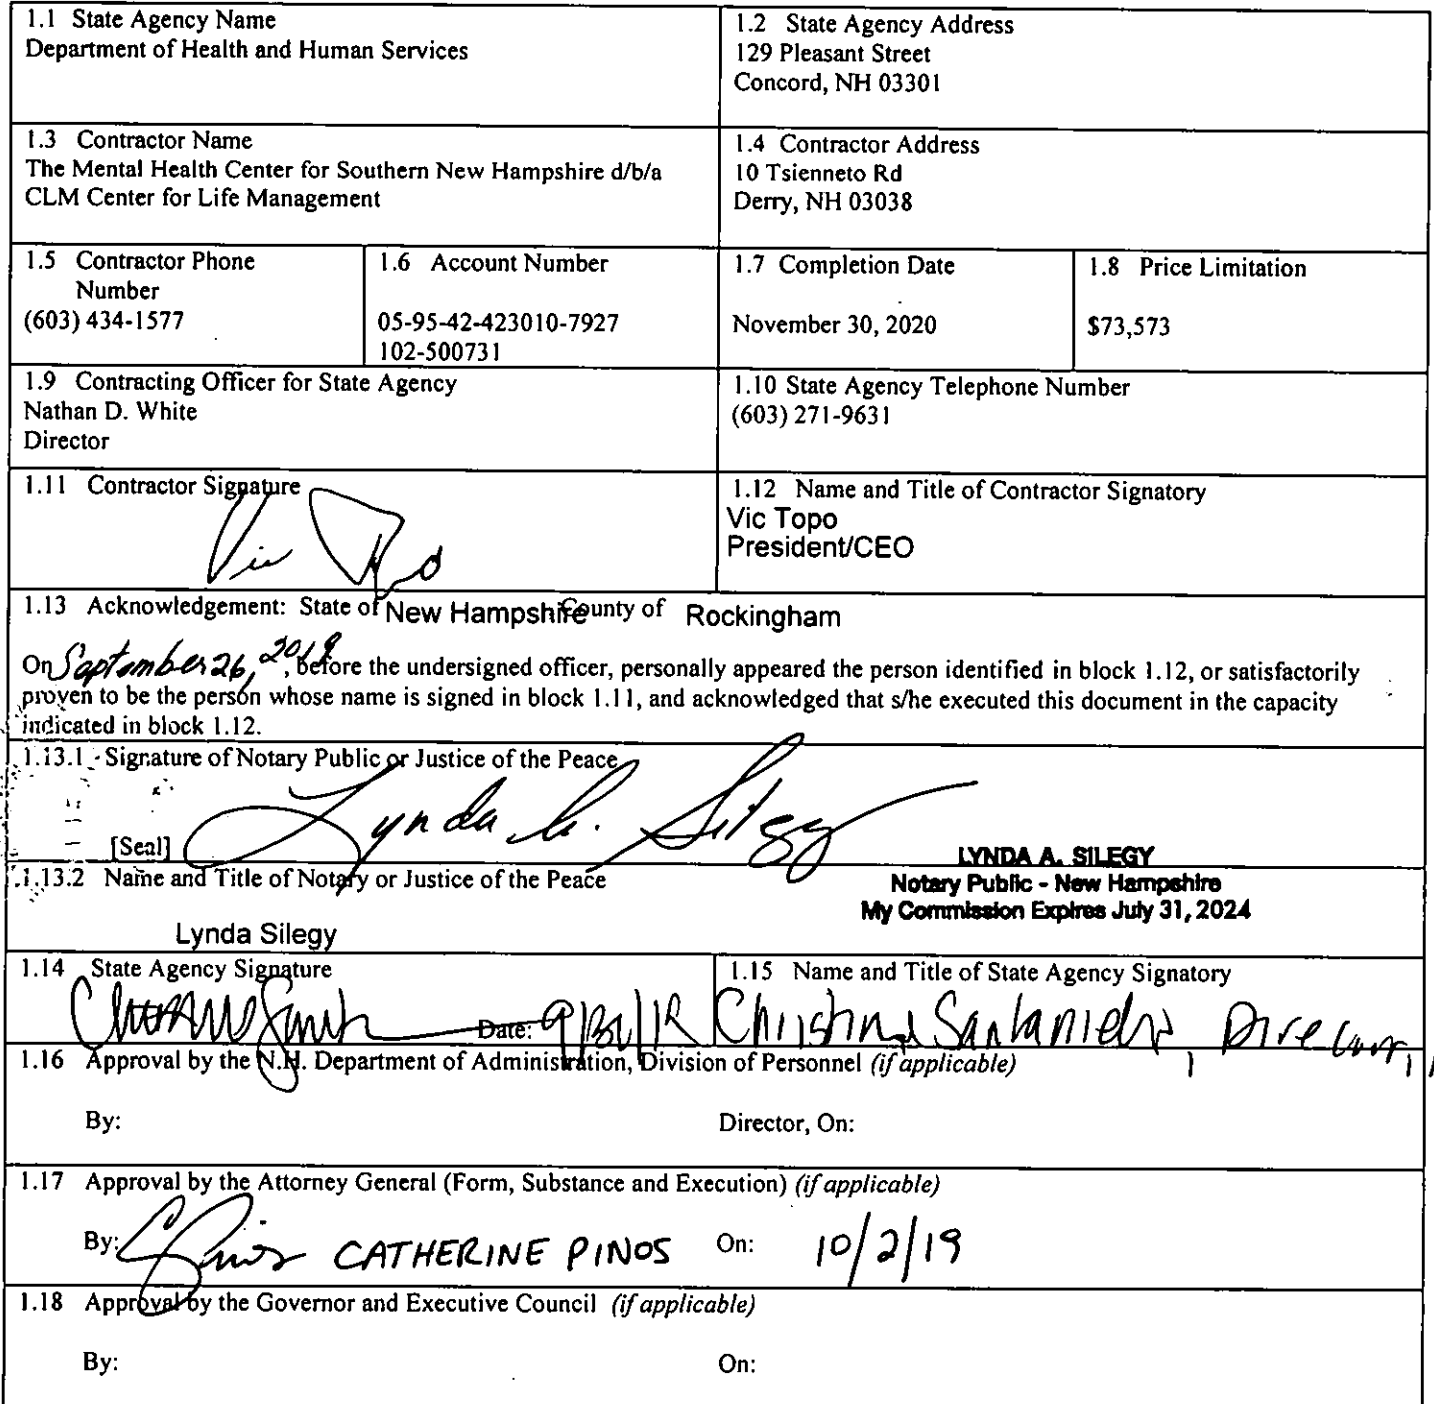 1.1 State Agency Name
Department of Health and Human Services
1.2 State Agency Address
129 Pleasant Street
Concord, NH 03301
1.3 Contractor Name
The Mental Health Center for Southern New Hampshire d/b/a
CLM Center for Life Management
1.4 Contractor Address
10 Tsienneto Rd
Derry, NH 03038
1.5 Contractor Phone
Number
(603) 434-1577
1.6 Account Number
05-95-42-423010-7927
102-500731
1.7 Completion Date
November 30, 2020
1.8 Price Limitation
$73,573
1.9 Contracting Officer for State Agency
Nathan D. White
Director
1.10 State Agency Telephone Number
(603) 271-9631
1.11 Contractor Signature
Vic
1.12 Name and Title of Contractor Signatory
Vic Topo
President/CEO
1.13 Acknowledgement: State of New Hampshire County of Rockingham
On September 26, 2019, before the undersigned officer, personally appeared the person identified in block 1.12, or satisfactorily
proven to be the person whose name is signed in block 1.11, and acknowledged that s/he executed this document in the capacity
indicated in block 1.12.
1.13.1 Signature of Notary Public or Justice of the Peace
Lynda A. Silegy
[Seal]
LYNDA A. SILEGY
Notary Public - New Hampshire
My Commission Expires July 31, 2024
1.13.2 Name and Title of Notary or Justice of the Peace
Lynda Silegy
1.14 State Agency Signature
Date:
1.15 Name and Title of State Agency Signatory
Christine Santaniello, Director,
1.16 Approval by the N.H. Department of Administration, Division of Personnel (if applicable)
By:
Director, On:
1.17 Approval by the Attorney General (Form, Substance and Execution) (if applicable)
By: CATHERINE PINOS On: 10/2/19
1.18 Approval by the Governor and Executive Council (if applicable)
By:
On: